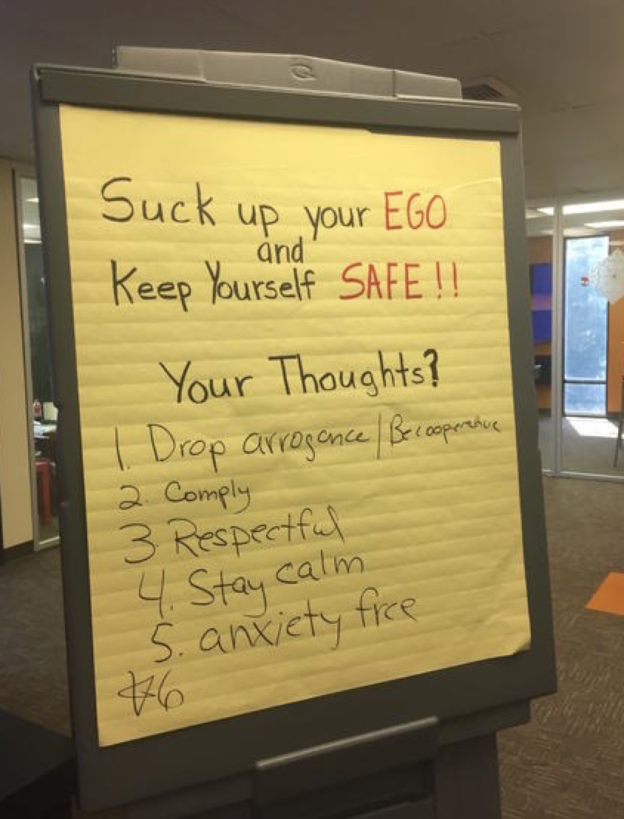 Suck up your EGO
and
Keep Yourself SAFE!!
Your Thoughts?
1. Drop arrogance/Be cooperative
2. Comply
3 Respectful
4. Stay calm
5. anxiety free
6